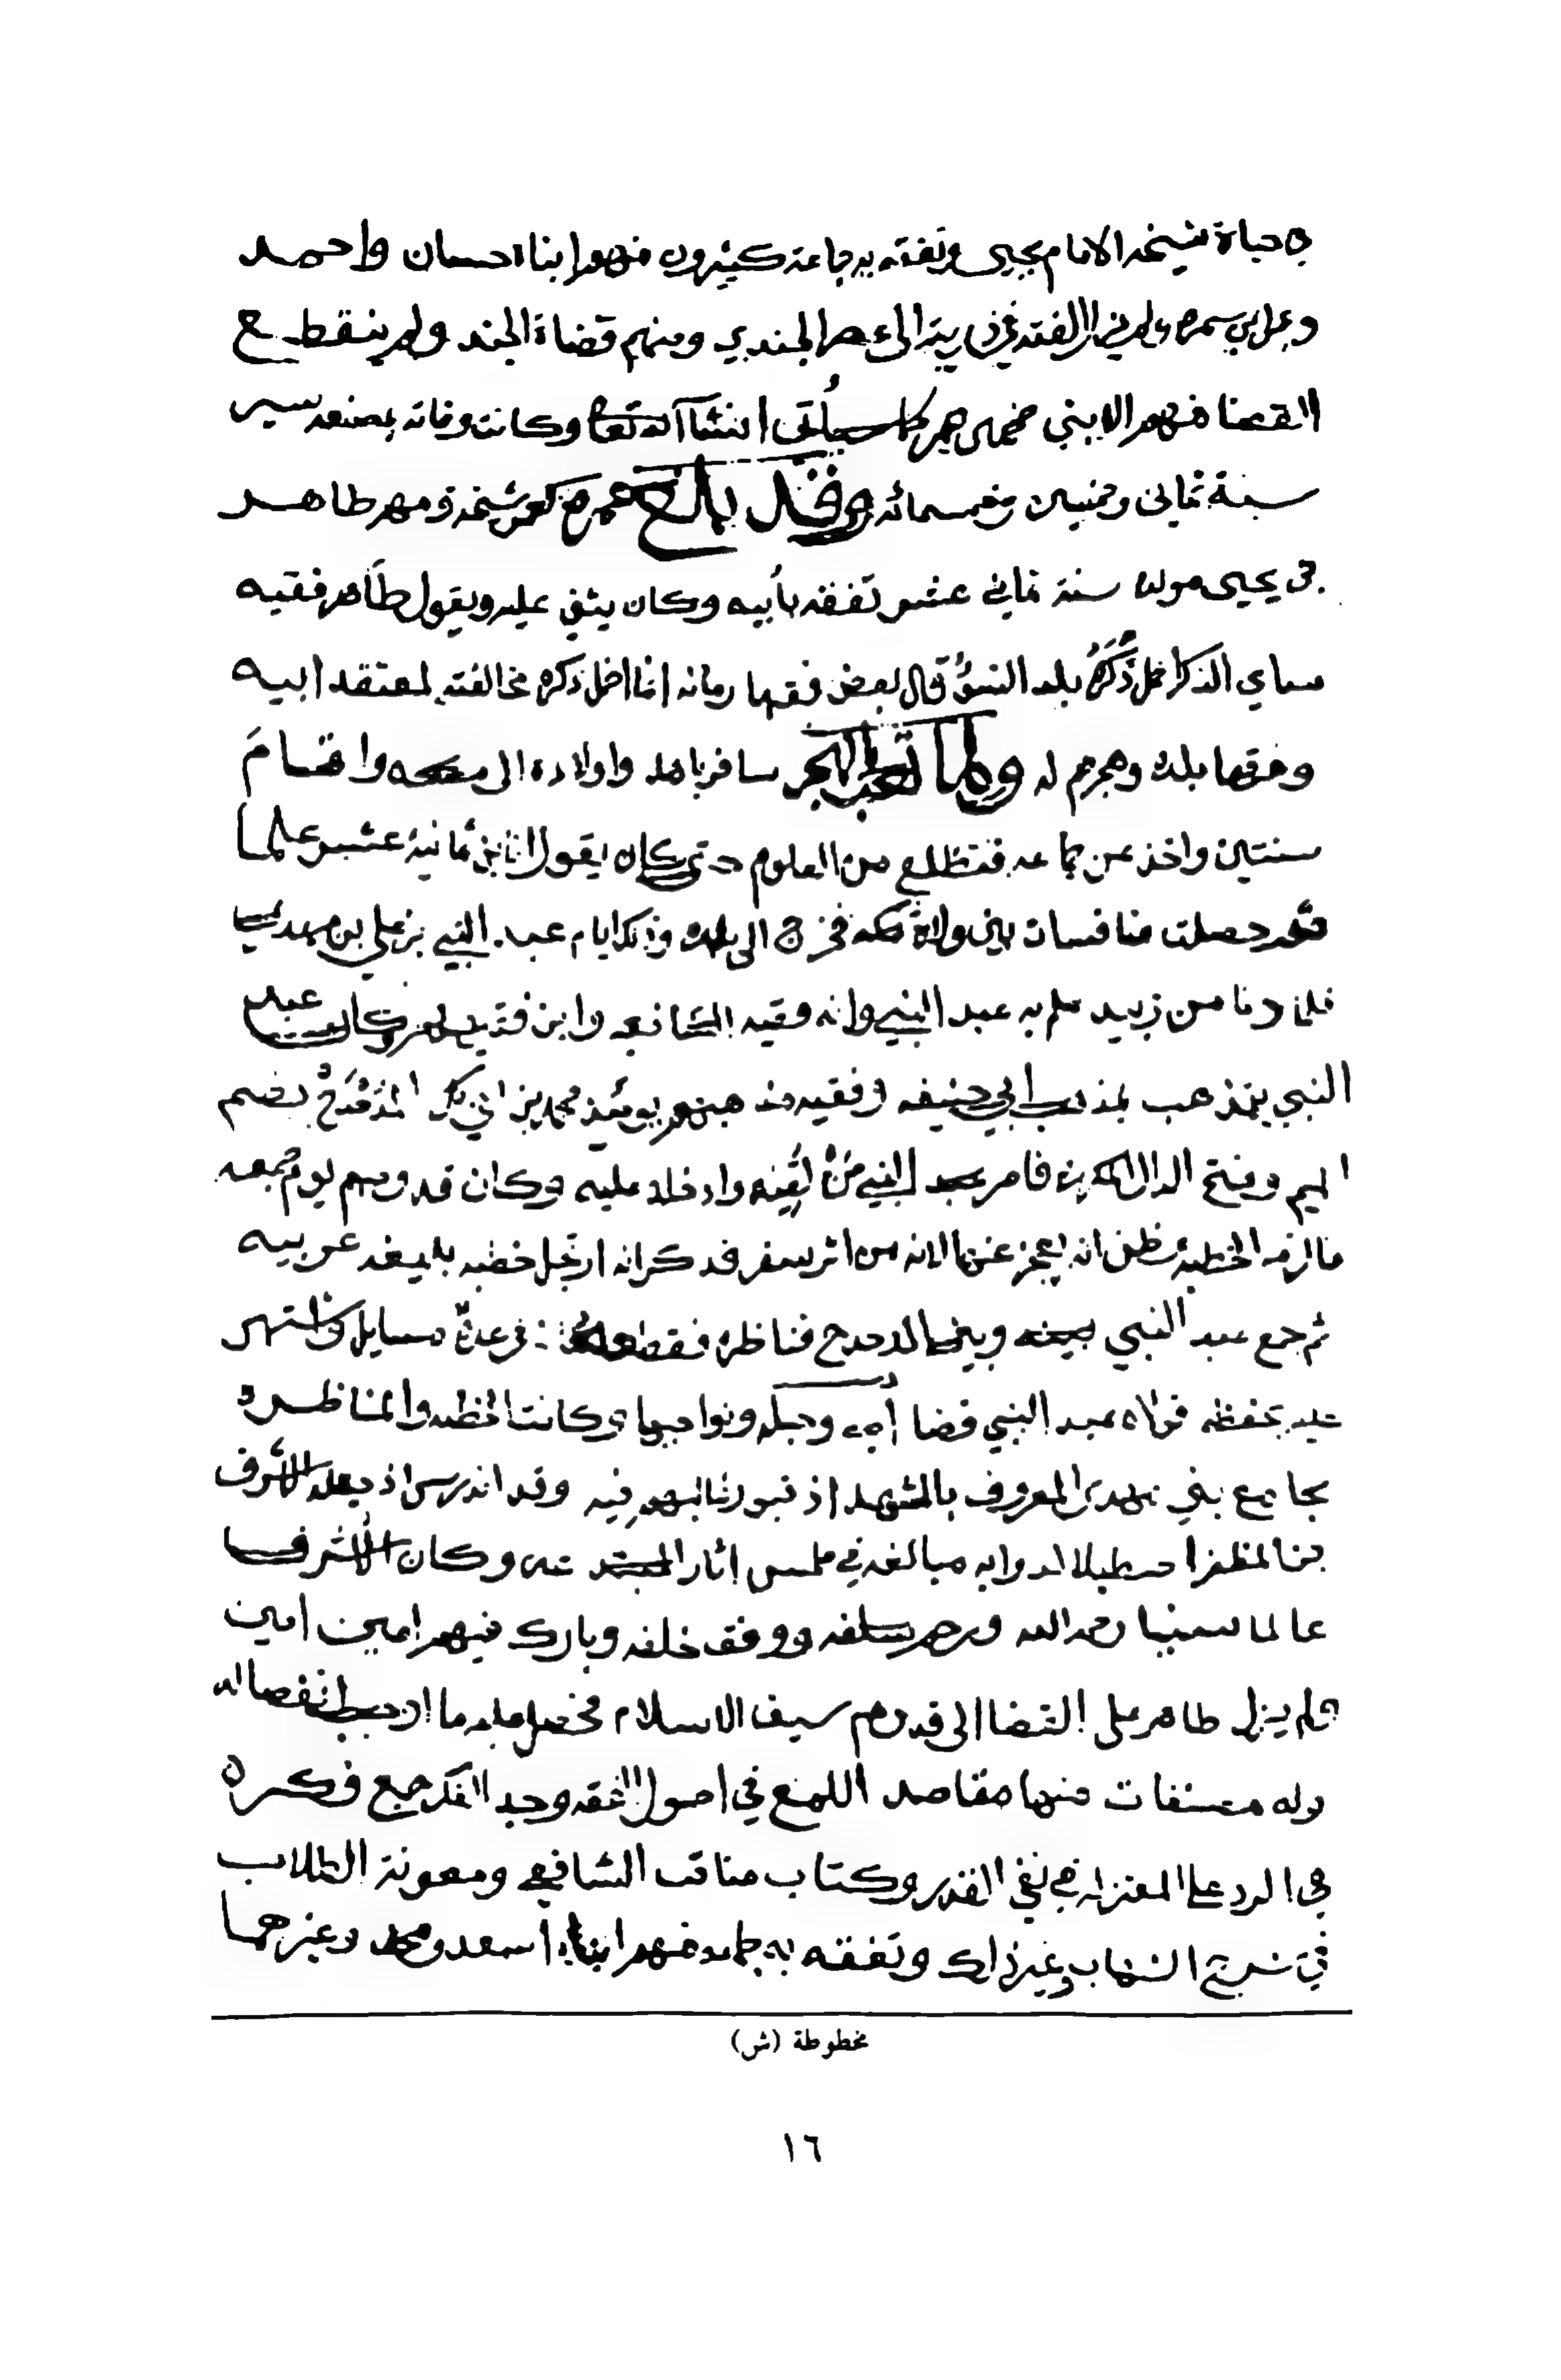 في حياة شيخه الامام يحيى وتفقه به جماعة كثيرون منهم ابناه حسان واحمد
وعلي بن سمره ولم يزل الفقه في ذريته الى عصر الجندي ومنهم قضاة الجند ولم ينقطع
القضا منهم الا ببني محمد بن عمر كما سيأتي انشآالله تعا وكانت وفاته بمصنعة سير
سنة ثماني وخمسين وخمسمائه وقد بلغ عمره نحو عمر شيخه ومنهم طاهر
بن يحيى مولده سنة ثماني عشر تفقه بأبيه وكان يثني عليه ويقول طاهر فقيه
سماي الذكر اخمل ذكره بلد السوُ قال بعض فقها زمانه انما اخمل ذكره مخالفته لمعتقد ابيه
وفقها بلده وهجرهم له ولما سافر باهله واولاده الى مكه واقام
سنتين واخذ عن جماعه فتظلع من العلوم حتى كان يقول انا ابن ثمانية عشر علما
ثم حصلت منافسات بين ولاة مكه فخرج الى بلده وذلك ايام عبد النبي بن علي بن مهدي
فلما دنا من زبيد علم به عبد النبي وانه فقيه الشافعيه وابن فقيههم وكان عبد
النبي يتمذهب بمذهب ابي حنيفه وفقيه مذهبهم يومئذ محمد بن ابي بكر المُدَحْدَح بضم
الميم وفتح الدالين فامر عبد النبي مَنْ لقيه وادخله عليه وكان قدومهم يوم جمعه
فالزمه الخطبة وظن انه يعجز عنها لانه من اثر سفر فذكر انه ارتجل خطبه بليغه عربيه
ثم جمع عبد النبي بينه وبين المدحدح فناظره فقطعه في عدة مسايل واشتهر
عليه بحفظه فولاه عبد النبي قضا وجبله ونواحيها وكانت الخطبه والمناظره
بجامع بني مهدي المعروف بالمشهد اذ قبور غالبهم فيه وقد اندرس اذ جعله الاشرف
بن المظفر اصطبلا لدوابه مبالغه في طمس اثار المبتدعه وكان الاشرف
عالما سنيا رحمه الله ورحم سلفه ووفق خلفه وبارك فيهم امين امين
ولم يزل طاهر على القضا الى قدوم سيف الاسلام فحصل عليه ما اوجب انفصاله
وله مصنفات منها مقاصد اللمع في اصول الفقه وجيد الفكر جمع فكره
في الرد على المعتزله في نفي القدر وكتاب مناقب الشافعي ومعونة الطلاب
في شرح الشهاب وغير ذلك وتفقه به جماعه منهم ابناه اسعد ومحمد وغيرهما
مخطوطة (ش)
١٦